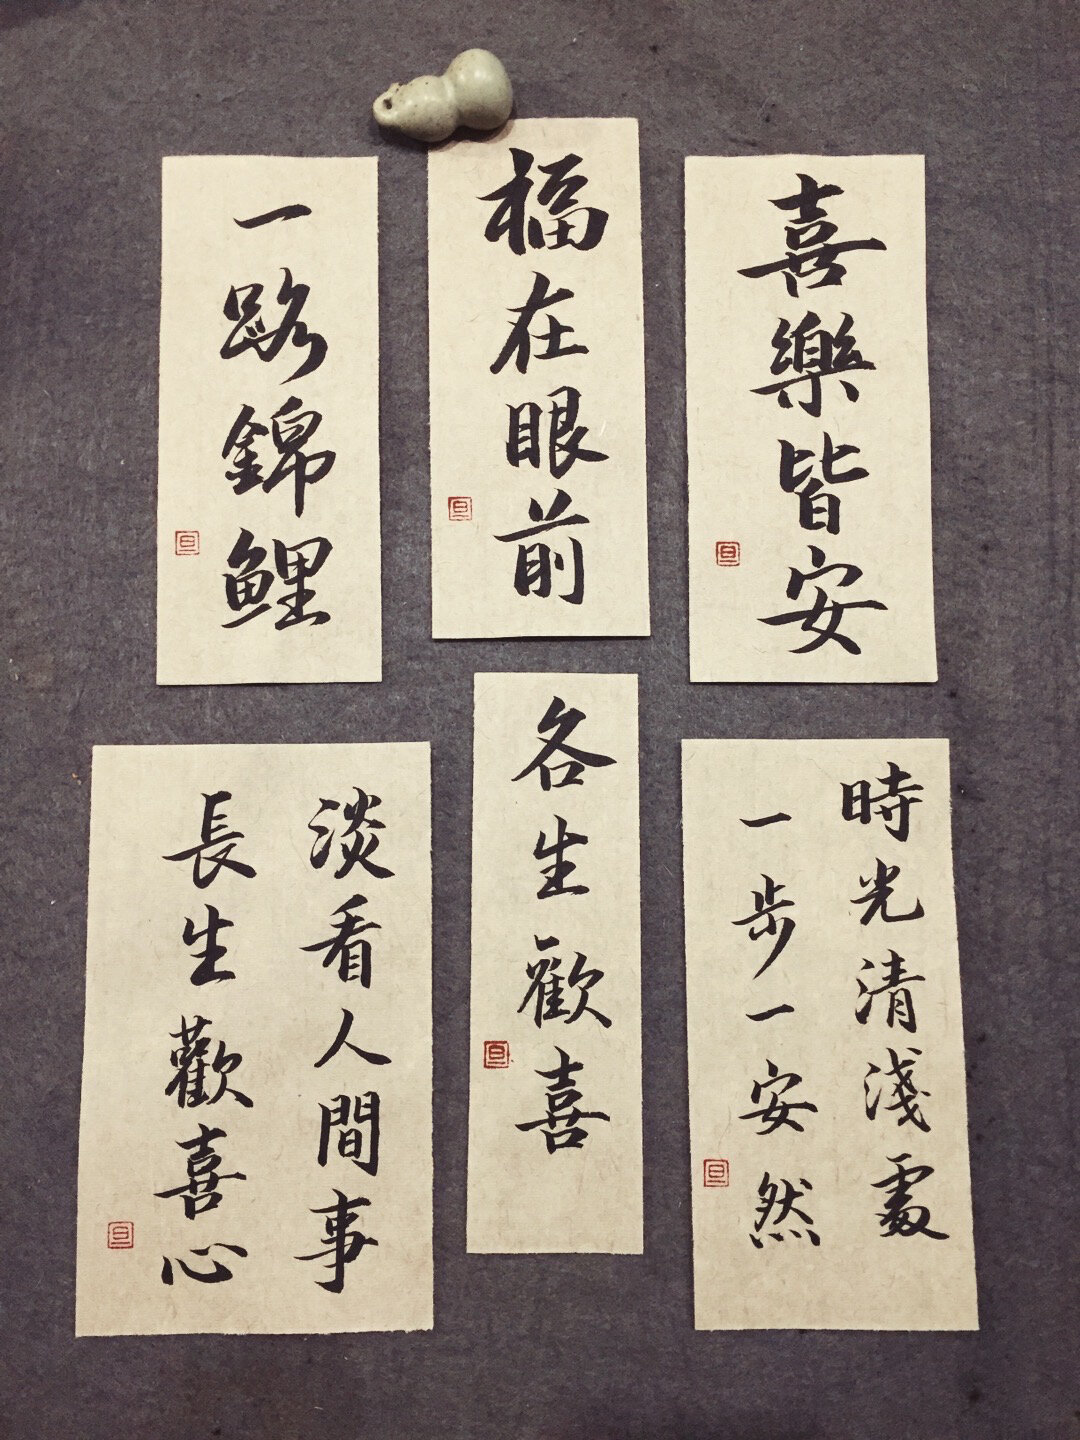 一路錦鯉
旦
福在眼前
旦
喜樂皆安
旦
淡看人間事
長生歡喜心
旦
各生歡喜
旦
時光清淺處
一步一安然
旦